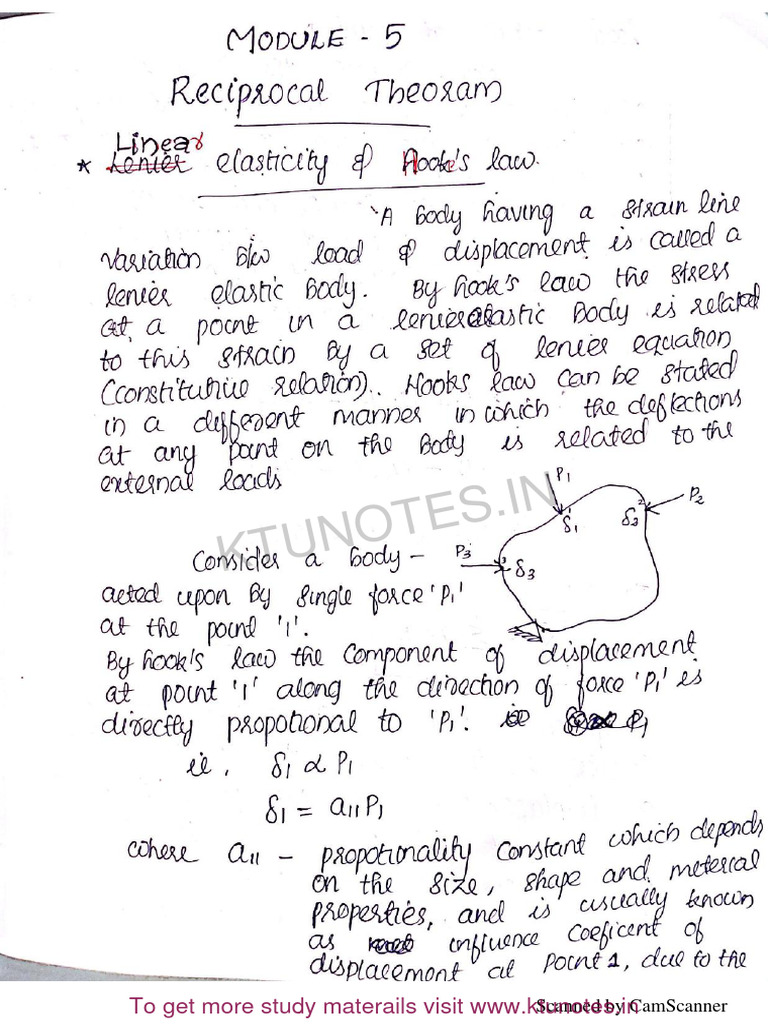 MODULE - 5
Reciprocal Theoram
Linear
* Lenier elasticity & Hooke's law.
A body having a strain line
variation b/w load & displacement is called a
lenier elastic body. By hook's law the stress
at a point in a lenier elastic Body is related
to this strain by a set of lenier equation
(constitutive relation). Hooks law can be stated
in a different manner in which the deflections
at any point on the Body is related to the
external loads
P1
P2
δ1
δ2
P3
δ3
KTUNOTES.IN
Consider a body -
acted upon by single force 'P1'
at the point '1'.
By hook's law the component of displacement
at point '1' along the direction of force 'P1' is
directly propotional to 'P1'. ie P1
ie, δ1 α P1
δ1 = a11P1
where a11 - propotionality constant which depends
on the size, shape and meterial
properties, and is usually known
as influence coeficent of
displacement at point 1, due to the
To get more study materails visit www.ktunotes.in
Scanned by CamScanner